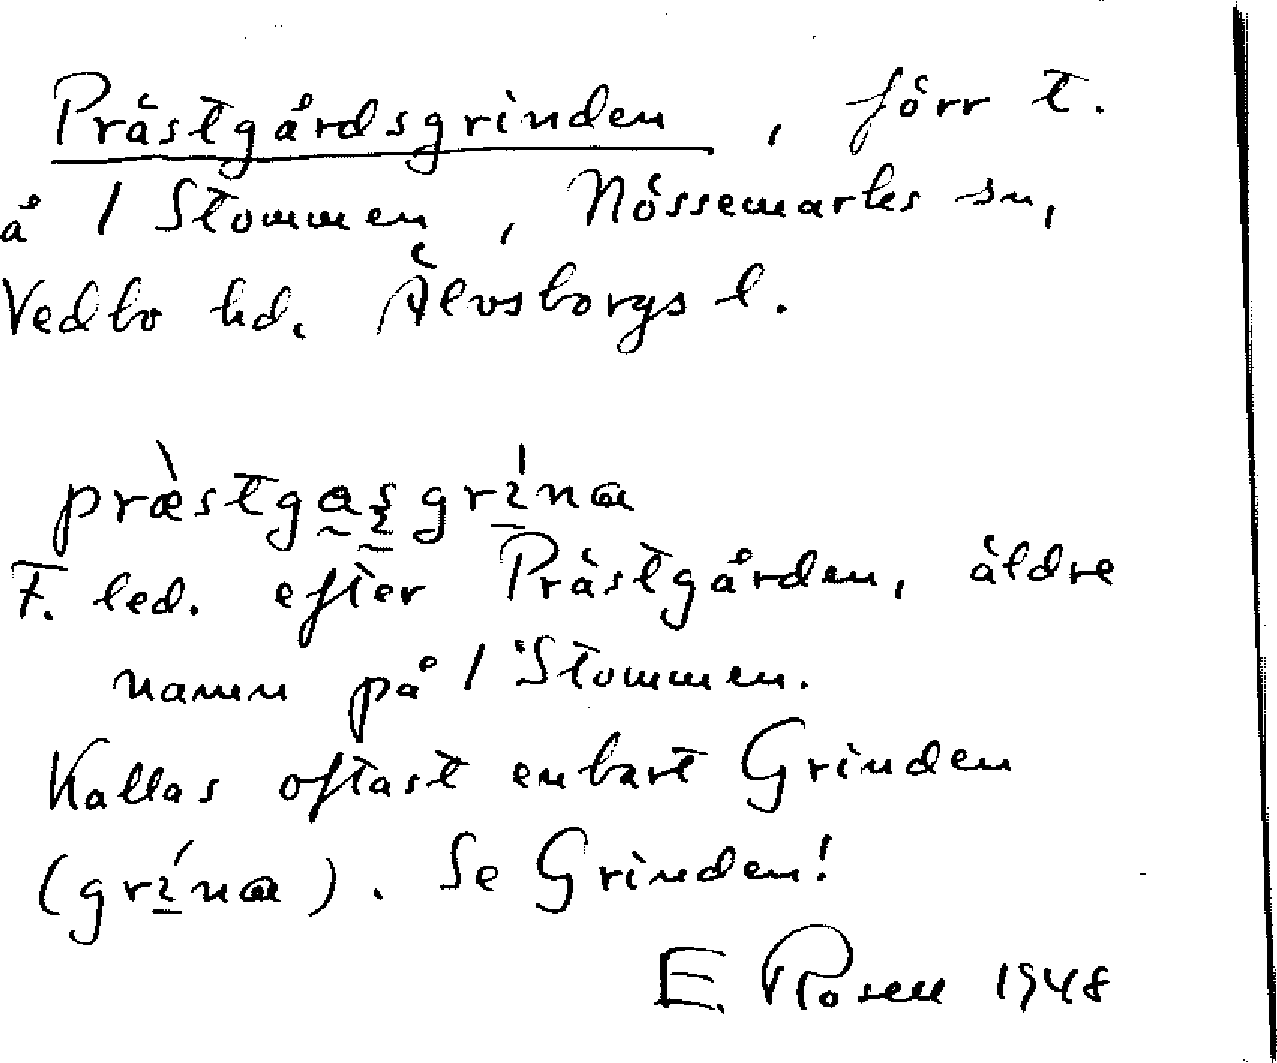 Prästgårdsgrinden, förr t.
å 1 Stommen, Nössemarks sn,
Vedbo hd. Älvsborgs l.
F. led. efter Prästgården, äldre
namn på 1 Stommen.
Kallas oftast enbart Grinden
(grína). Se Grinden!
E. Rosell 1948